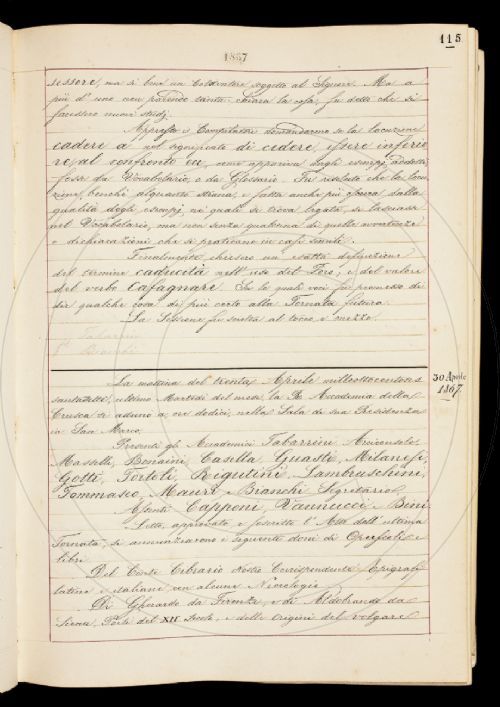 115
1867
sessore, ma sì bene un Coltivatore soggetto al Signore. Ma a
più d'uno non parendo tanto chiara la cosa, fu detto che si
facessero nuovi studj.
Appresso i Compilatori domandarono se la locuzione
cadere a nel significato di cedere, essere inferio
re, al confronto ec, come appariva dagli esempj addotti
fosse da Vocabolario, o da Glossario. Fu risoluto che la locu
zione, benchè alquanto strana, e fatta anche più oscura dalla
qualità degli esempj, nei quali si trova legata, si lasciasse
nel Vocabolario, ma non senza qualcuna di quelle avvertenze
o dichiarazioni che si praticano in casi simili.
Finalmente chiesero un'esatta definizione
del termine caducità nell'uso del Foro, e del valore
del verbo Cafagnare. Che le quali voci fu promesso di
dir qualche cosa di più certo alla Tornata futura.
La Sessione fu sciolta al tocco e mezzo.
Tabarrini
Bianchi
30 Aprile
1867.
La mattina del trenta Aprile milleottocentoses
santasette, ultimo Martedì del mese, la R. Accademia della
Crusca si adunò a ore dodici, nella Sala di sua Residenza
in San Marco.
Presenti gli Accademici Tabarrini Arciconsolo,
Masselli, Bonaini, Casella, Guasti, Milanesi,
Gotti, Tortoli, Rigutini, Lambruschini,
Tommaseo, Mauri e Bianchi Segretario.
Assenti Capponi, Vannucci e Bini.
Letto, approvato e sottoscritto l'Atto dell'ultima
Tornata, si annunziarono i seguenti doni di Opuscoli e
libri.
Del Conte Cibrario nostro Corrispondente Epigrafi
latine e italiane con alcune Necrologie
Di Gherardo da Firenze, e di Aldobrando da
Siena, Poeti del XII Secolo, e delle Origini del volgare